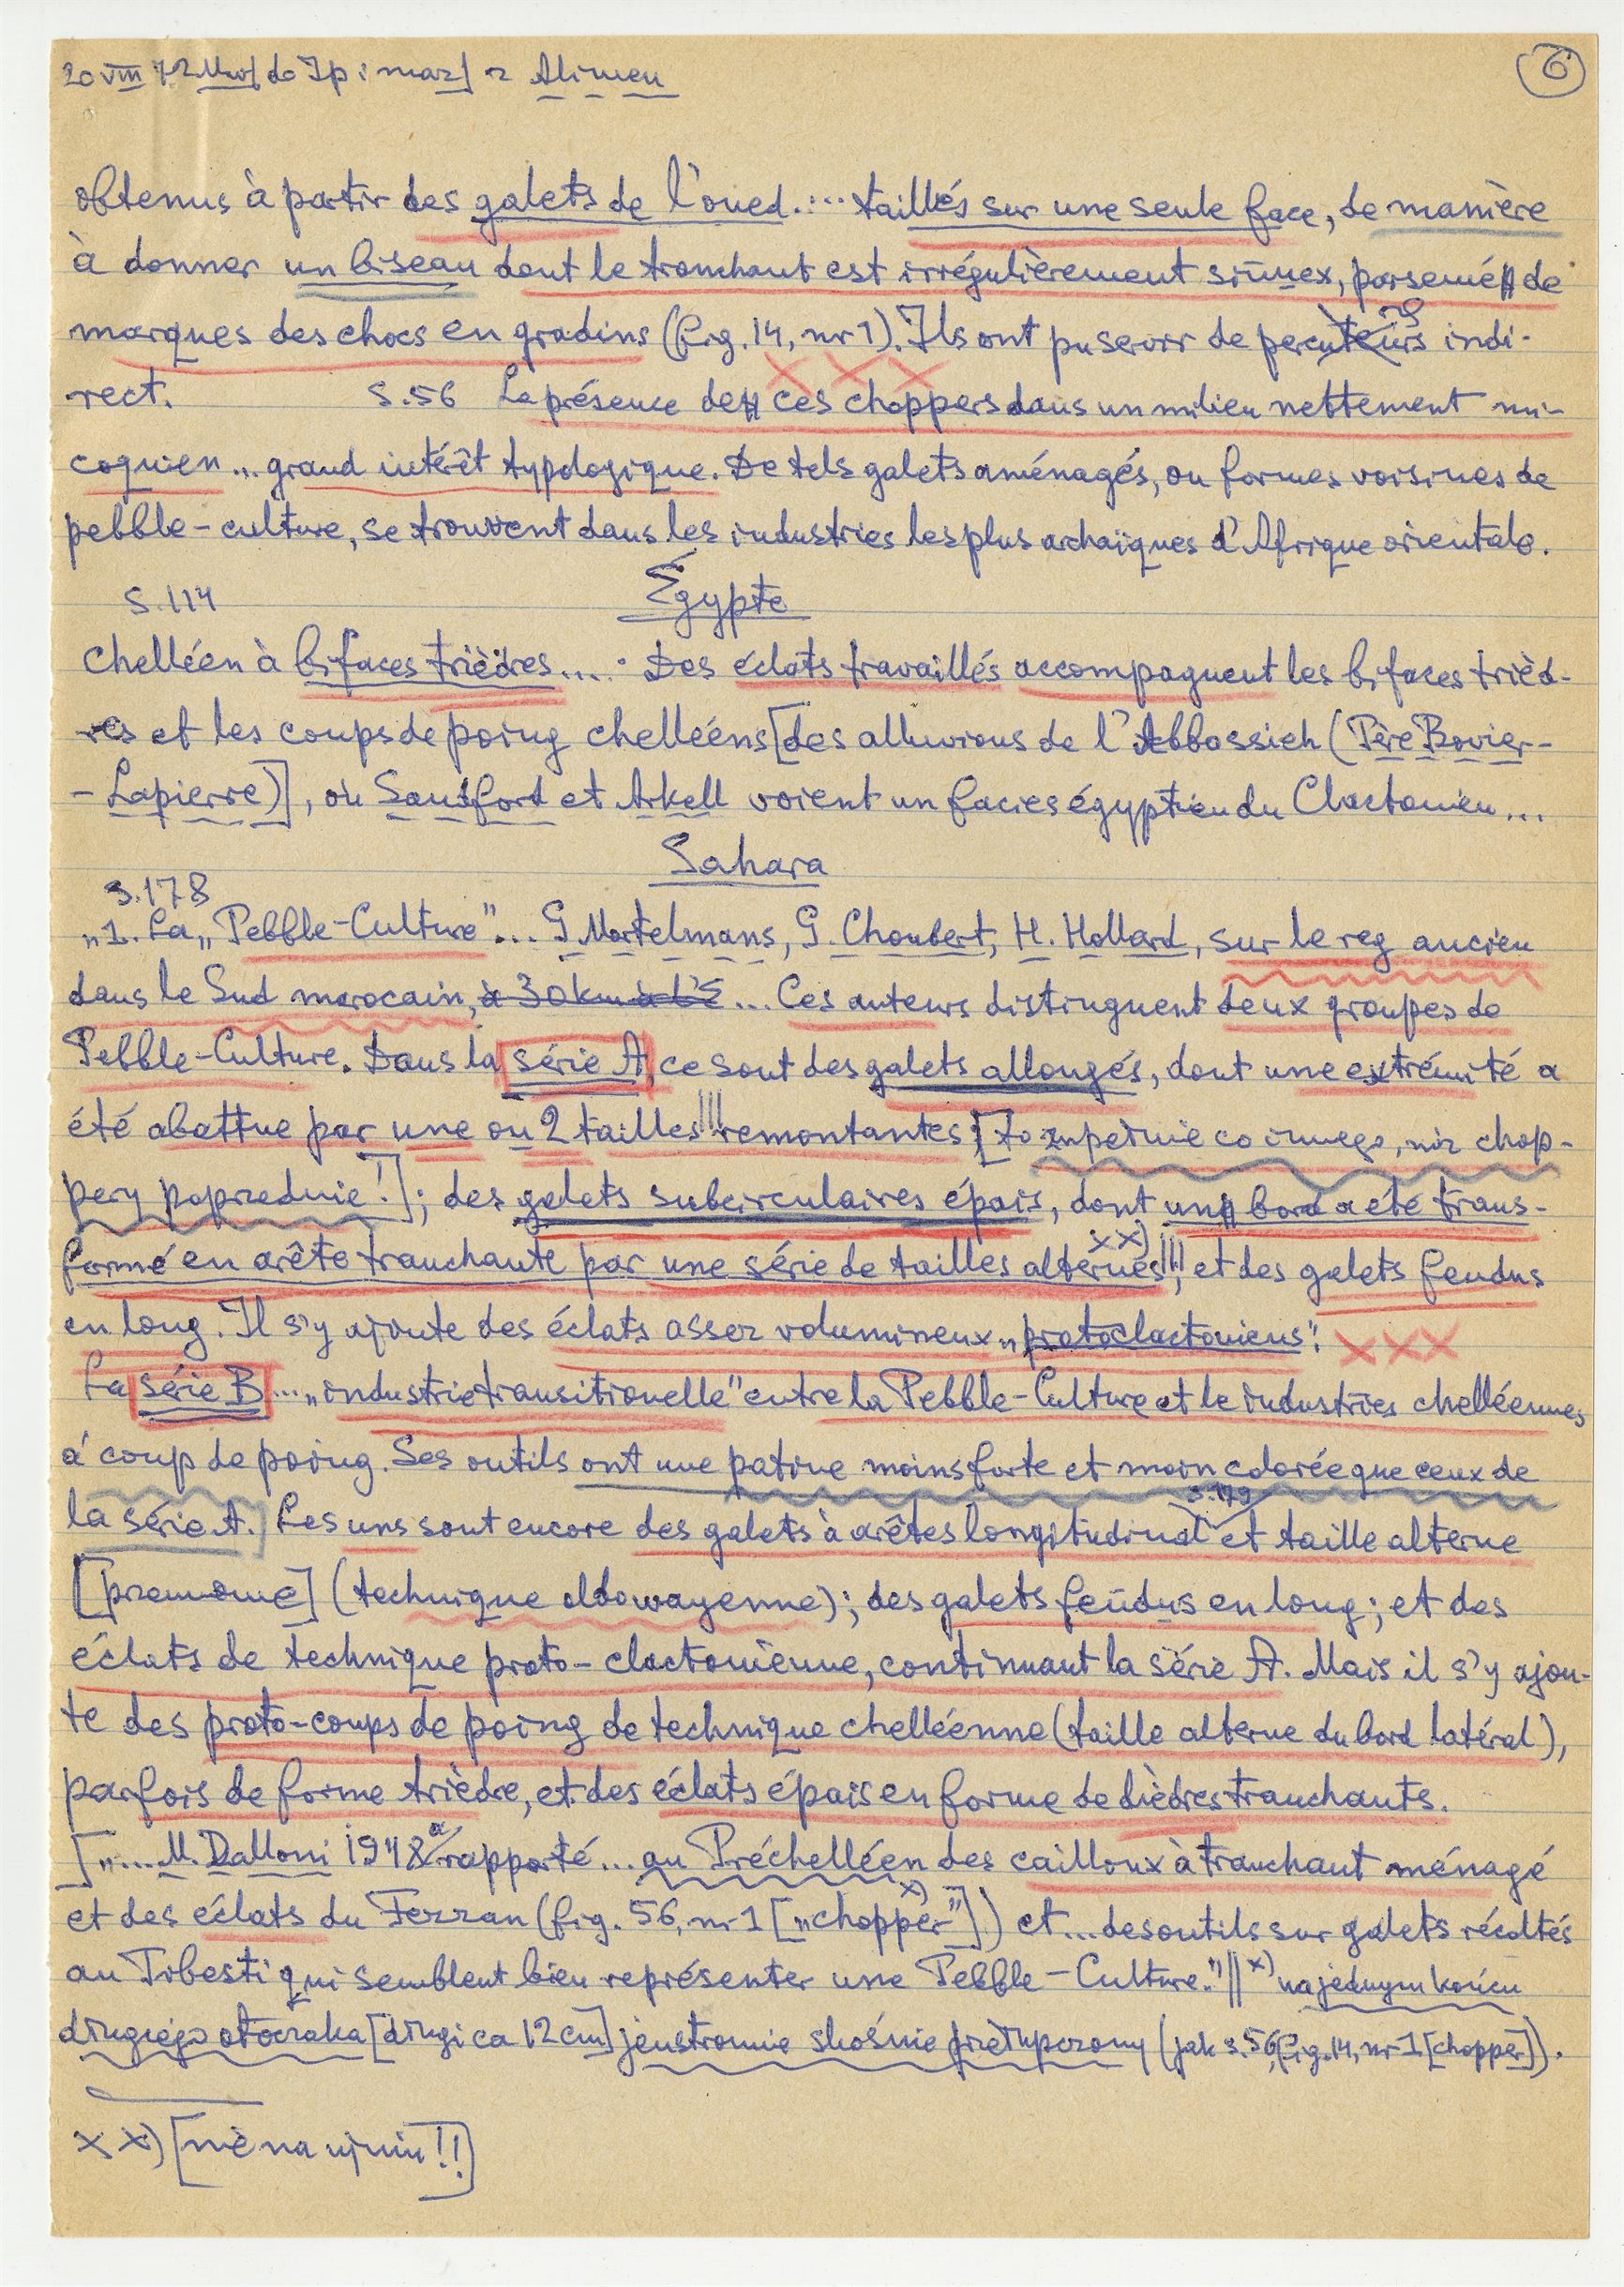 20 VIII 72 do Jp i maz] z Alimen
6
obtenus à partir des galets de l'oued.... taillés sur une seule face, de manière
à donner un biseau dont le tranchant est irrégulièrement sinuex, parsemé de
marques des chocs en gradins (fig. 14, nr 1). Ils ont pu servir de percuteurs indi-
rect. S.56 La présence de ces choppers dans un milieu nettement mi-
coquien ... grand intérêt typologique. De tels galets aménagés, ou formes voisines de
pebble-culture, se trouvent dans les industries les plus archaïques d'Afrique orientale.
S.114 Égypte
Chelléen à bifaces trièdres.... Des éclats travaillés accompagnent les bifaces trièd-
res et les coups de poing chelléens [des alluvions de l'Abbassieh (Père Bovier-
-Lapierre)], où Sandford et Arkell voient un facies égyptien du Clactonien...
Sahara
S.178
„1. La „Pebble-Culture"... G. Mortelmans, G. Choubert, H. Hollard, sur le reg ancien
dans le Sud marocain, à 30 km à l'E ... Ces auteurs distinguent deux groupes de
Pebble-Culture. Dans la série A, ce sont des galets allongés, dont une extrémité a
été abattue par une ou 2 tailles ||| remontantes [to zupełnie co innego, niż chop-
pery poprzednie!]; des galets subcirculaires épais, dont un bord a été trans-
formé en arête tranchante par une série de tailles alternes xx) |||, et des galets fendus
en long. Il s'y ajoute des éclats assez volumineux „protoclactoniens". XXX
La série B ... „industrie transitionelle" entre la Pebble-Culture et le industries chelléennes
à coup de poing. Ses outils ont une patine moins forte et moin colorée que ceux de
la série A.] Les uns sont encore des galets à arêtes longitudinal S.179 et taille alterne
[przemienne] (technique oldowayenne); des galets fendus en long; et des
éclats de technique proto-clactonienne, continuant la série A. Mais il s'y ajou-
te des proto-coups de poing de technique chelléenne (taille alterne du bord latéral),
parfois de forme trièdre, et des éclats épais en forme de dièdres tranchants.
[„... M. Dalloni 1948 a rapporté ... au Préchelléen des cailloux à tranchant ménagé
et des éclats du Fezzan (fig. 56, nr 1 [„chopper" x)]) et ... des outils sur galets récoltés
au Tibesti qui semblent bien représenter une Pebble-Culture." || x) na jednym końcu
długiego otoczaka [długi ca 12 cm] jednstronnie skośnie (jak s. 56, fig. 14, nr 1 [chopper]).
xx) [nie na !!]